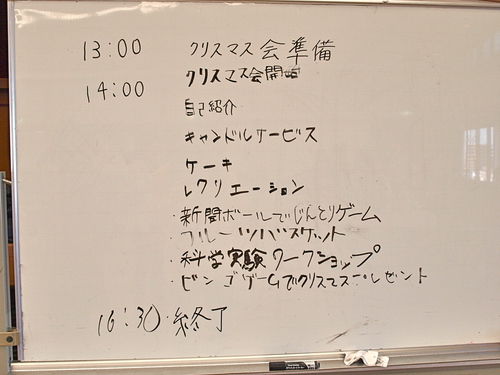 13:00 クリスマス会準備
14:00 クリスマス会開始
自己紹介
キャンドルサービス
ケーキ
レクリエーション
・新聞ボールでじんとりゲーム
・フルーツバスケット
・科学実験ワークショップ
・ビンゴゲームでクリスマスプレゼント
16:30 終了